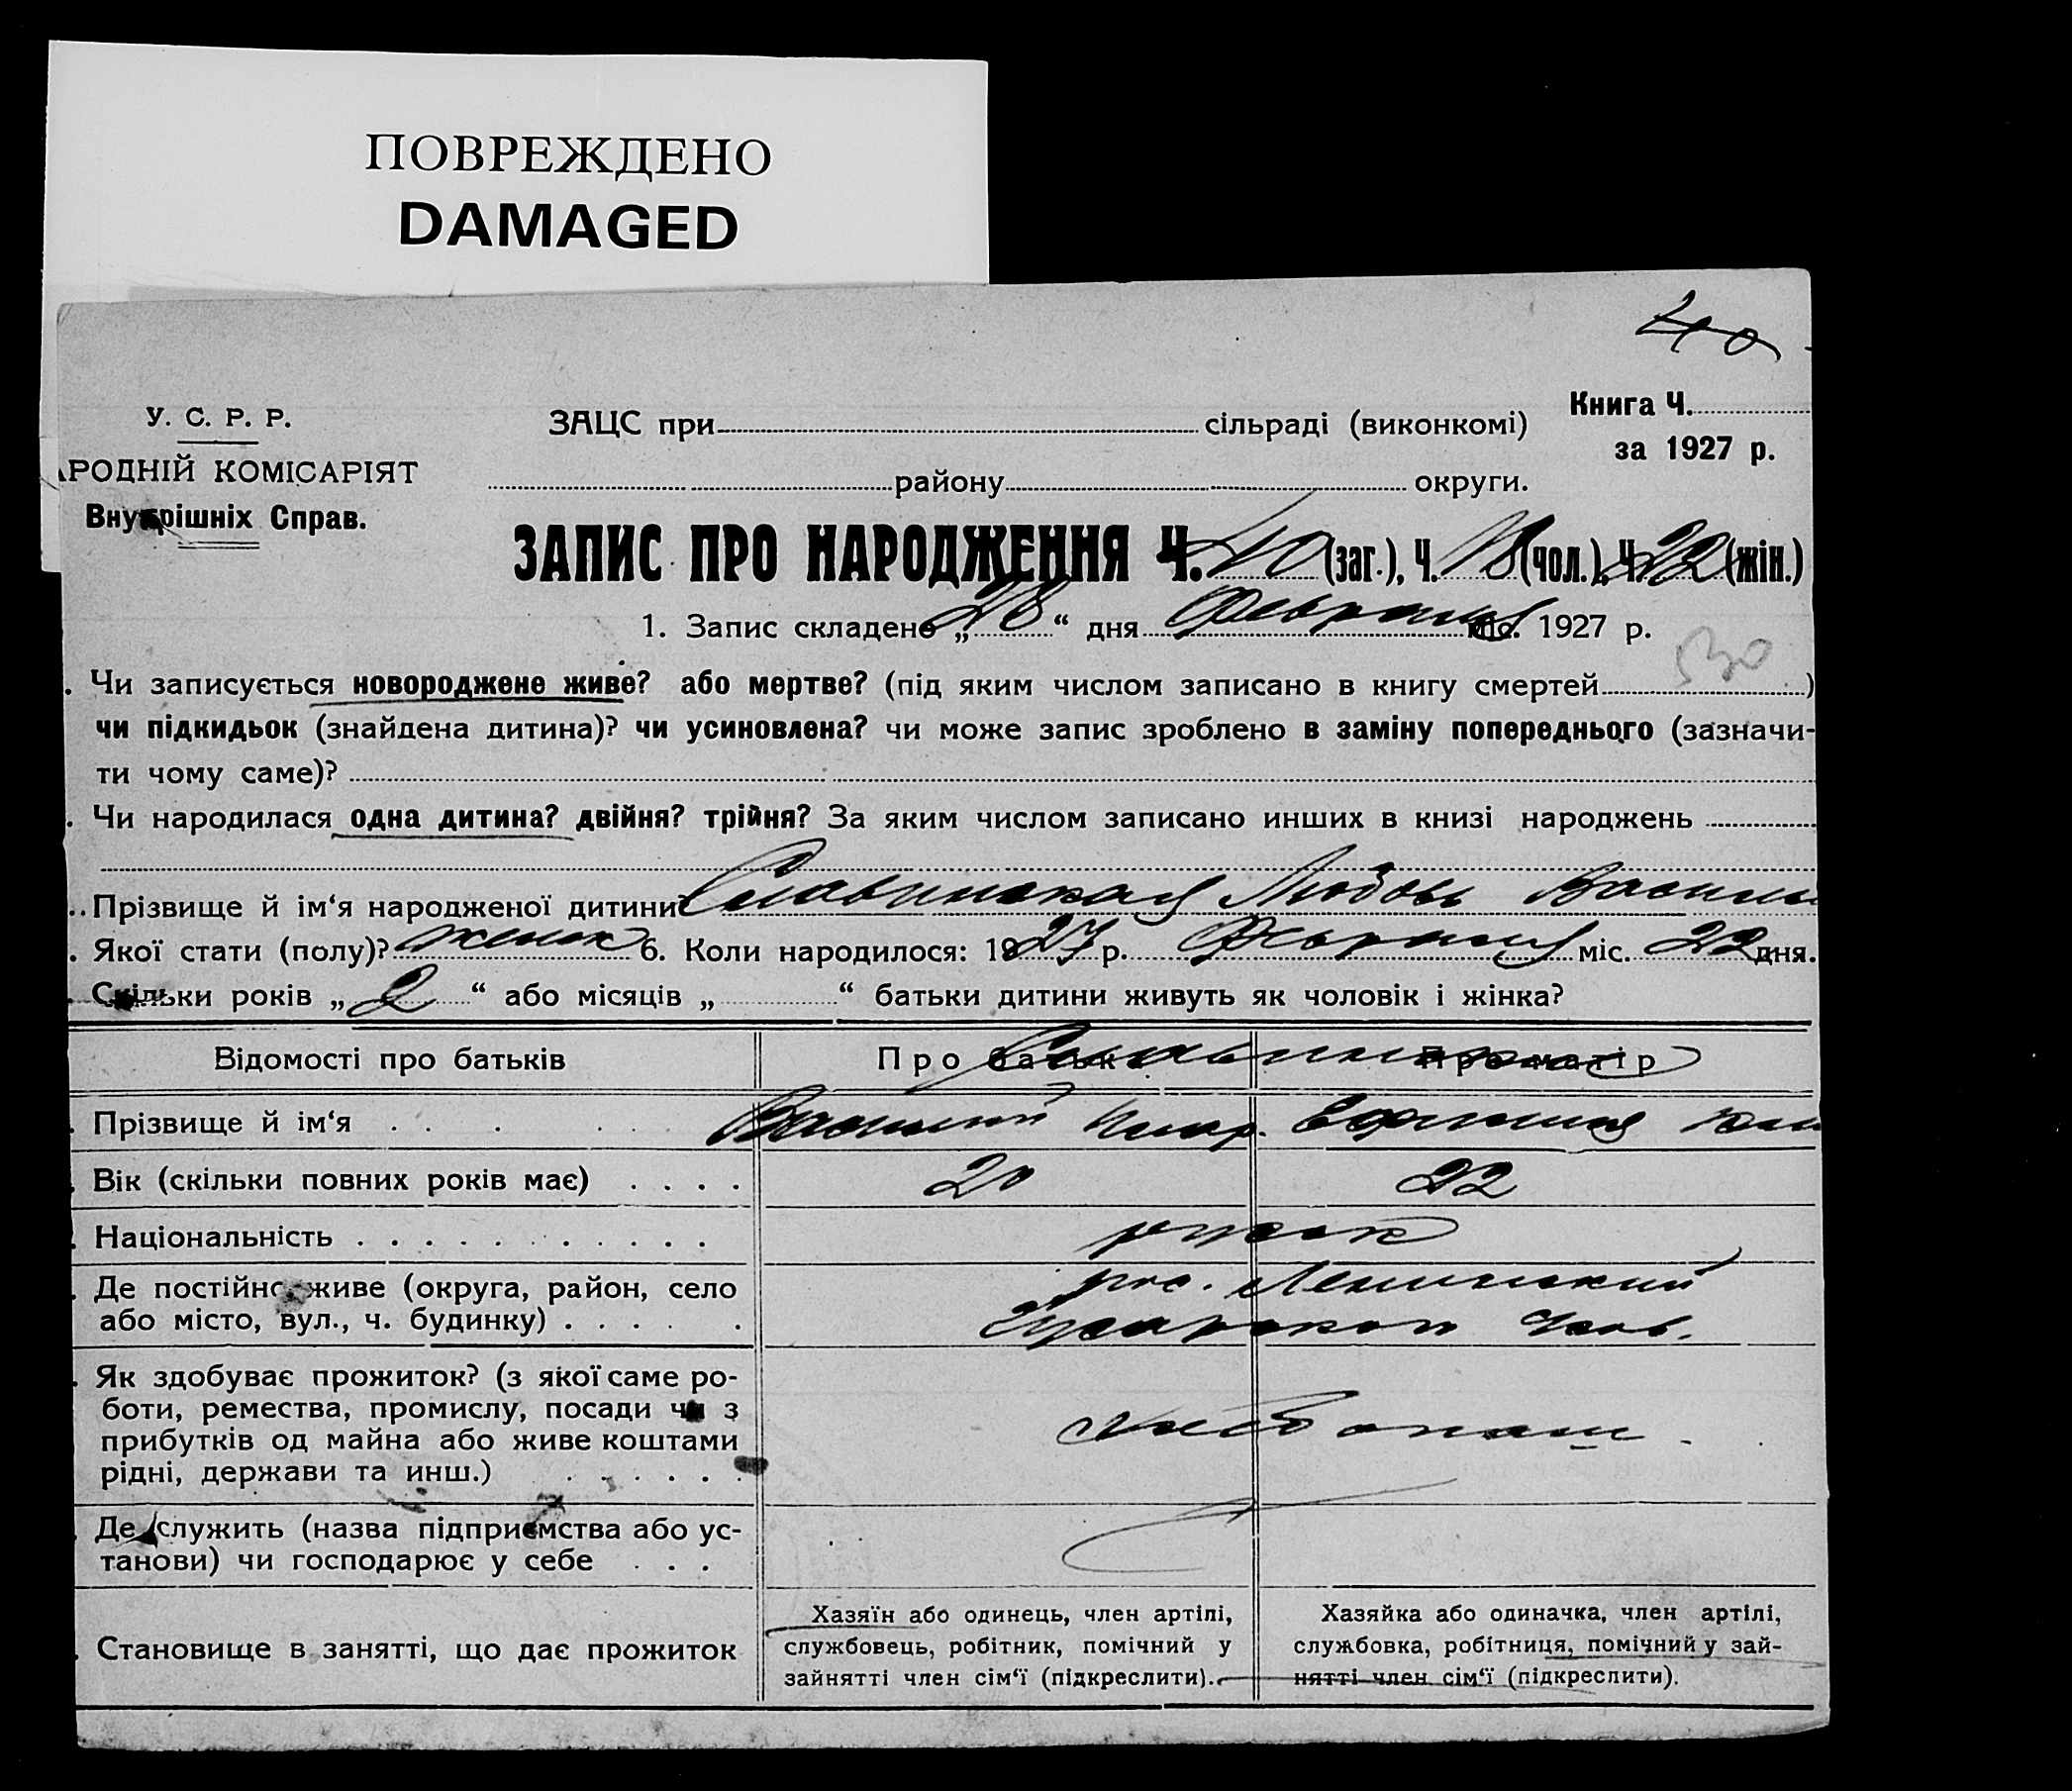 ПОВРЕЖДЕНО
DAMAGED
40
У. С. Р. Р.
АРОДНІЙ КОМІСАРІЯТ
Внутрішніх Справ.
ЗАЦС при сільраді (виконкомі)
району округи.
Книга Ч.
за 1927 р.
ЗАПИС ПРО НАРОДЖЕННЯ Ч. 40 (заг.), Ч. 18 (чол.), Ч. 22 (жін.)
1. Запис складено „28“ дня Февраля міс. 1927 р.
530
. Чи записується новороджене живе? або мертве? (під яким числом записано в книгу смертей )
чи підкидьок (знайдена дитина)? чи усиновлена? чи може запис зроблено в заміну попереднього (зазначи-
ти чому саме)?
. Чи народилася одна дитина? двійня? трійня? За яким числом записано инших в книзі народжень
. Прізвище й ім‘я народженої дитини Славинская Любовь Васильев
. Якої стати (полу)? женск 6. Коли народилося: 1927 р. Февраля міс. 22 дня.
. Скільки років „2“ або місяців „ “ батьки дитини живуть як чоловік і жінка?
Відомості про батьків Про батька Про матір
Прізвище й ім‘я . . . . . . Василий Евгения
Вік (скільки повних років має) . . . . 20 22
Національність . . . . . . . . . . . русск
Де постійно живе (округа, район, село пос. Ленинский
або місто, вул., ч. будинку) . . . . .
Як здобуває прожиток? (з якої саме ро-
боти, ремества, промислу, посади чи з хлебопаш.
прибутків од майна або живе коштами
рідні, держави та инш.) . . . . . .
Де служить (назва підприємства або ус-
танови) чи господарює у себе . . .
Становище в занятті, що дає прожиток
Хазяїн або одинець, член артілі,
службовець, робітник, помічний у
зайнятті член сім‘ї (підкреслити).
Хазяйка або одиначка, член артілі,
службовка, робітниця, помічний у зай-
нятті член сім‘ї (підкреслити).